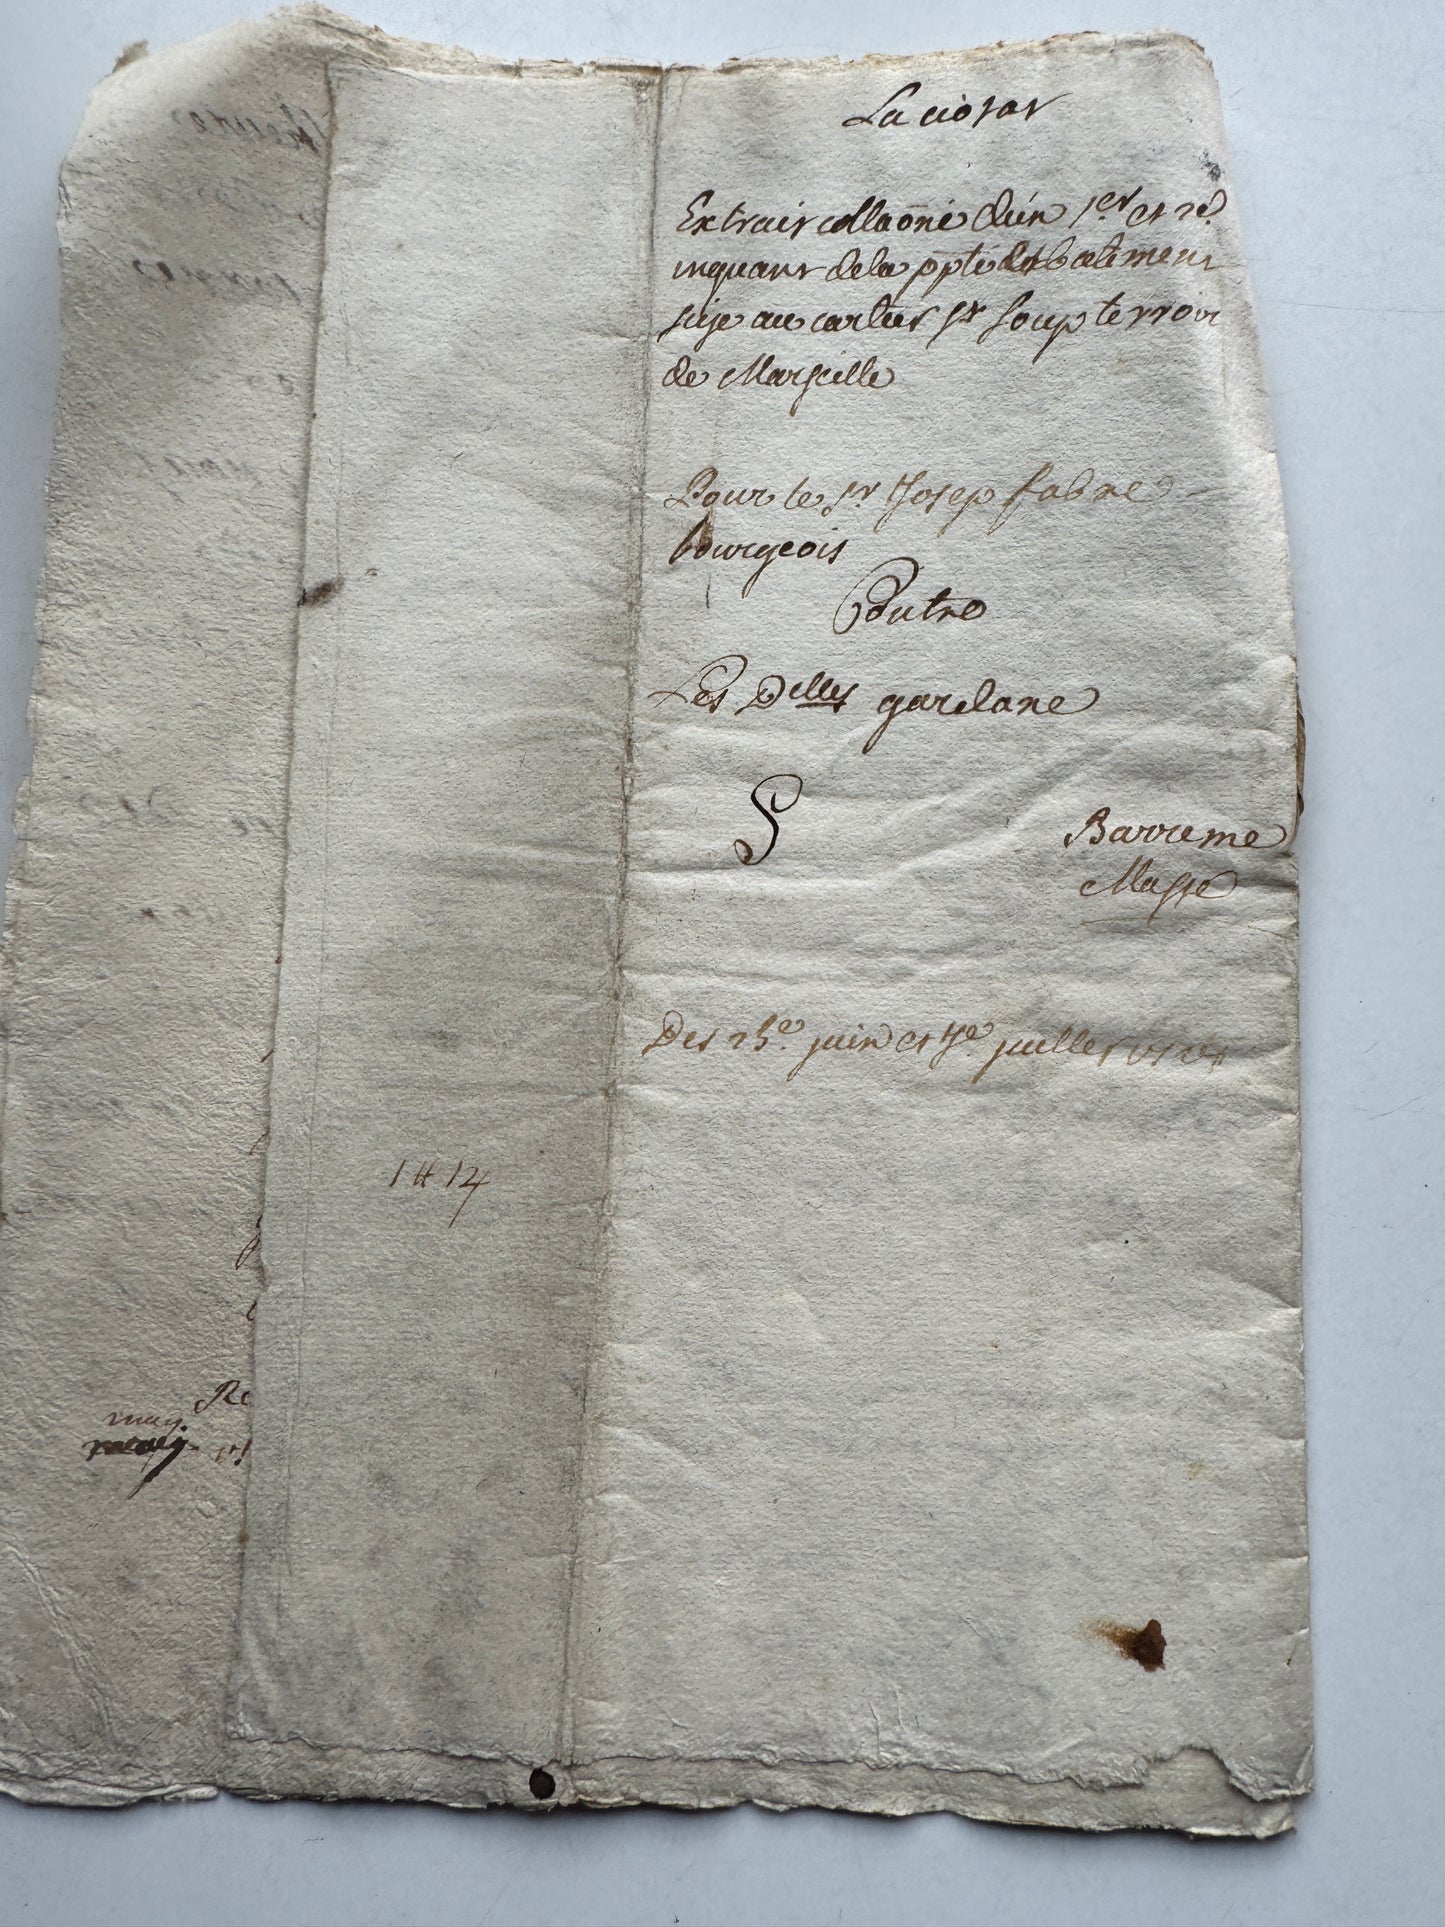 La ciotat
Extrait collaōné d'un 1er et 2e
inquant de la ppté des batiment
size au cartier st Loup terroir
de Marseille
Pour le sr Josep fabre
bourgeois
Contre
Les Delles gardane
Barreme
Masse
Des 25e juin et 7e juillet
1 # 14
may